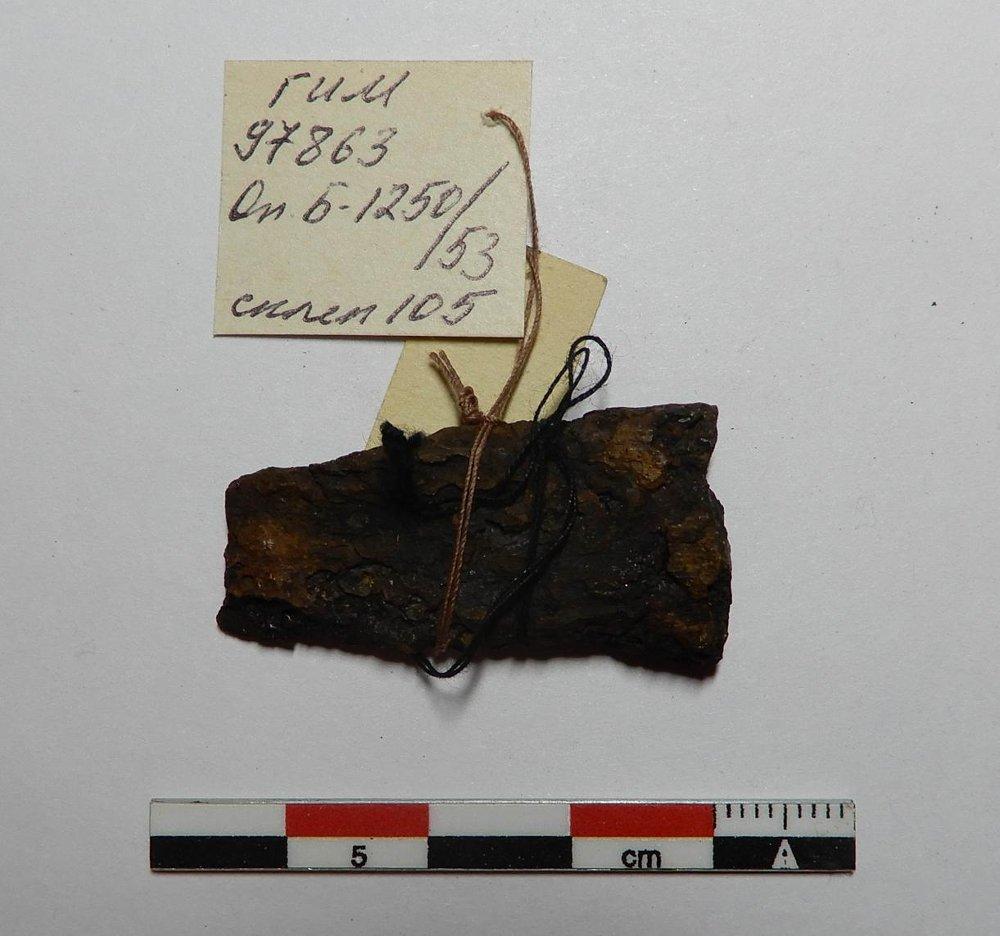 ГИМ
97863
Оп. Б-1250/
/53
склеп 105
5 cm